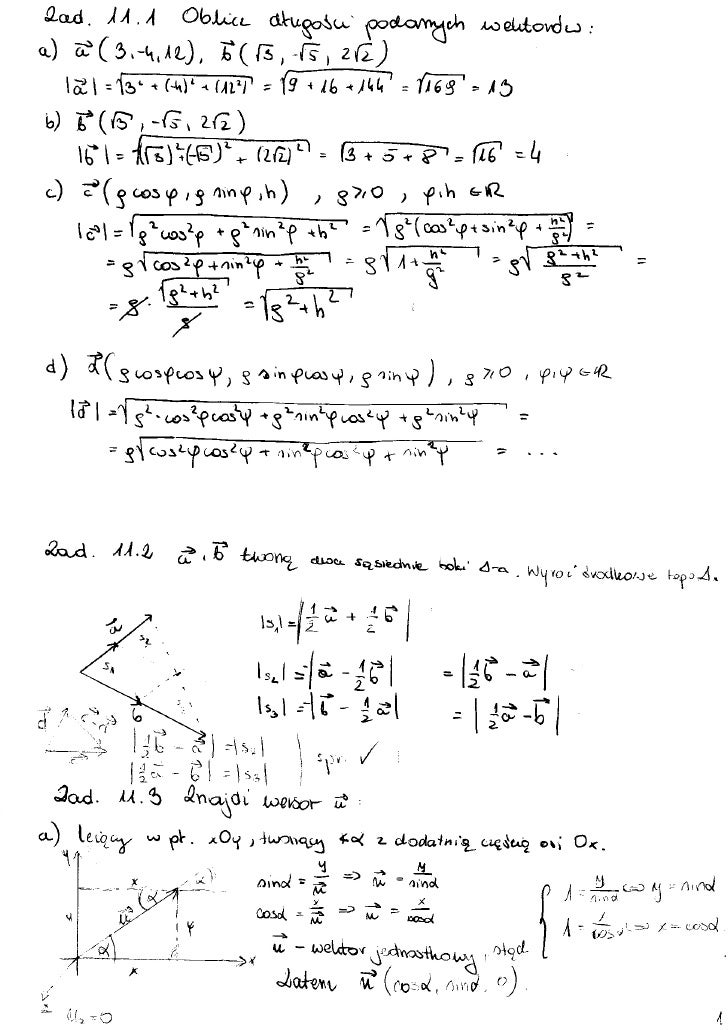 Zad. 11.1 Oblicz długości podanych wektorów:
a) a⃗ (3,-4,12), b⃗ (√3, -√5, 2√2)
|a⃗| = √(3² + (-4)² + (12²)) = √(9 + 16 + 144) = √169 = 13
b) b⃗ (√3, -√5, 2√2)
|b⃗| = √((√3)² + (-√5)² + (2√2)²) = √(3 + 5 + 8) = √16 = 4
c) c⃗ (ρ cos φ, ρ sin φ, h) , ρ ⩾ 0 , φ, h ∈ ℝ
|c⃗| = √(ρ² cos²φ + ρ² sin²φ + h²) = √(ρ² (cos²φ + sin²φ + h²/ρ²)) =
= ρ√(cos²φ + sin²φ + h²/ρ²) = ρ√(1 + h²/ρ²) = ρ√((ρ² + h²)/ρ²) =
= ρ · √(ρ² + h²)/ρ = √(ρ² + h²)
d) d⃗ (ρ cosφ cosψ, ρ sinφ cosψ, ρ sinψ) , ρ ⩾ 0 , φ, ψ ∈ ℝ
|d⃗| = √(ρ² · cos²φ cos²ψ + ρ² sin²φ cos²ψ + ρ² sin²ψ) =
= ρ√(cos²φ cos²ψ + sin²φ cos²ψ + sin²ψ) = ...
Zad. 11.2 a⃗, b⃗ tworzą dwa sąsiednie boki Δ-a. Wyraź środkowe tego Δ.
a⃗ s₂
s₁ s₃
b⃗
|s₁| = |½ a⃗ + ½ b⃗|
|s₂| = |a⃗ - ½ b⃗| = |½ b⃗ - a⃗|
|s₃| = |b⃗ - ½ a⃗| = |½ a⃗ - b⃗|
d⃗ c⃗ - d⃗ c⃗
|½ b⃗ - a⃗| = |s₂|
|½ a⃗ - b⃗| = |s₃| spr. ✓
Zad. 11.3 Znajdź wersor u⃗:
a) leżący w pł. xOy, tworzący ∢α z dodatnią częścią osi Ox.
y x α
y u⃗ α y
x x
z
u₃ = 0
sinα = y/u⃗ => u⃗ = y/sinα
cosα = x/u⃗ => u⃗ = x/cosα
u⃗ - wektor jednostkowy, stąd
1 = y/sinα <=> y = sinα
1 = x/cosα <=> x = cosα
Zatem u⃗ (cosα, sinα, 0).
1